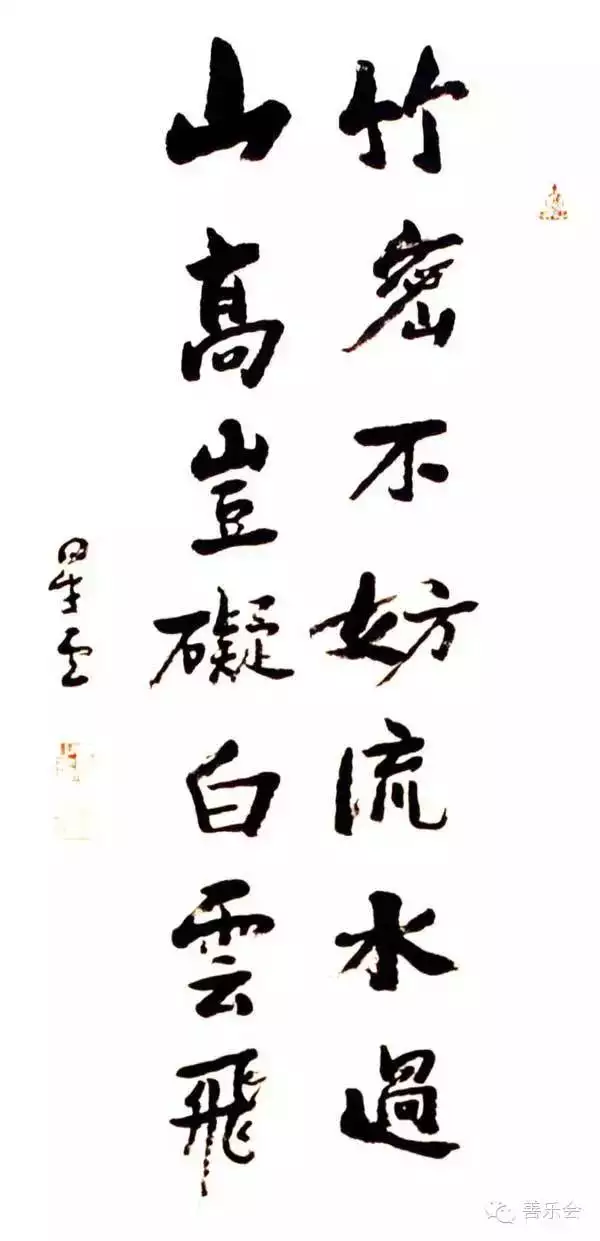 竹密不妨流水過
山高豈礙白雲飛
星雲
善乐会